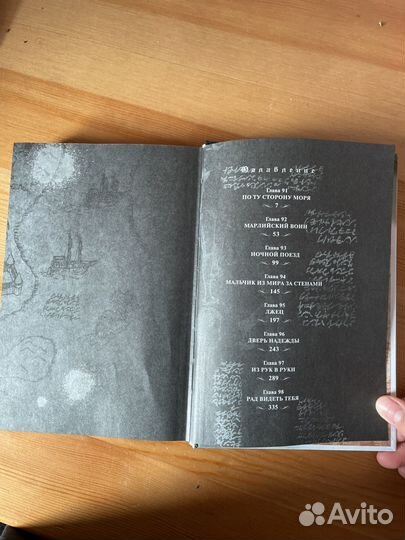 Оглавление
Глава 91
ПО ТУ СТОРОНУ МОРЯ
7
Глава 92
МАРЛИЙСКИЙ ВОИН
53
Глава 93
НОЧНОЙ ПОЕЗД
99
Глава 94
МАЛЬЧИК ИЗ МИРА ЗА СТЕНАМИ
145
Глава 95
ЛЖЕЦ
197
Глава 96
ДВЕРЬ НАДЕЖДЫ
243
Глава 97
ИЗ РУК В РУКИ
289
Глава 98
РАД ВИДЕТЬ ТЕБЯ
335
Avito